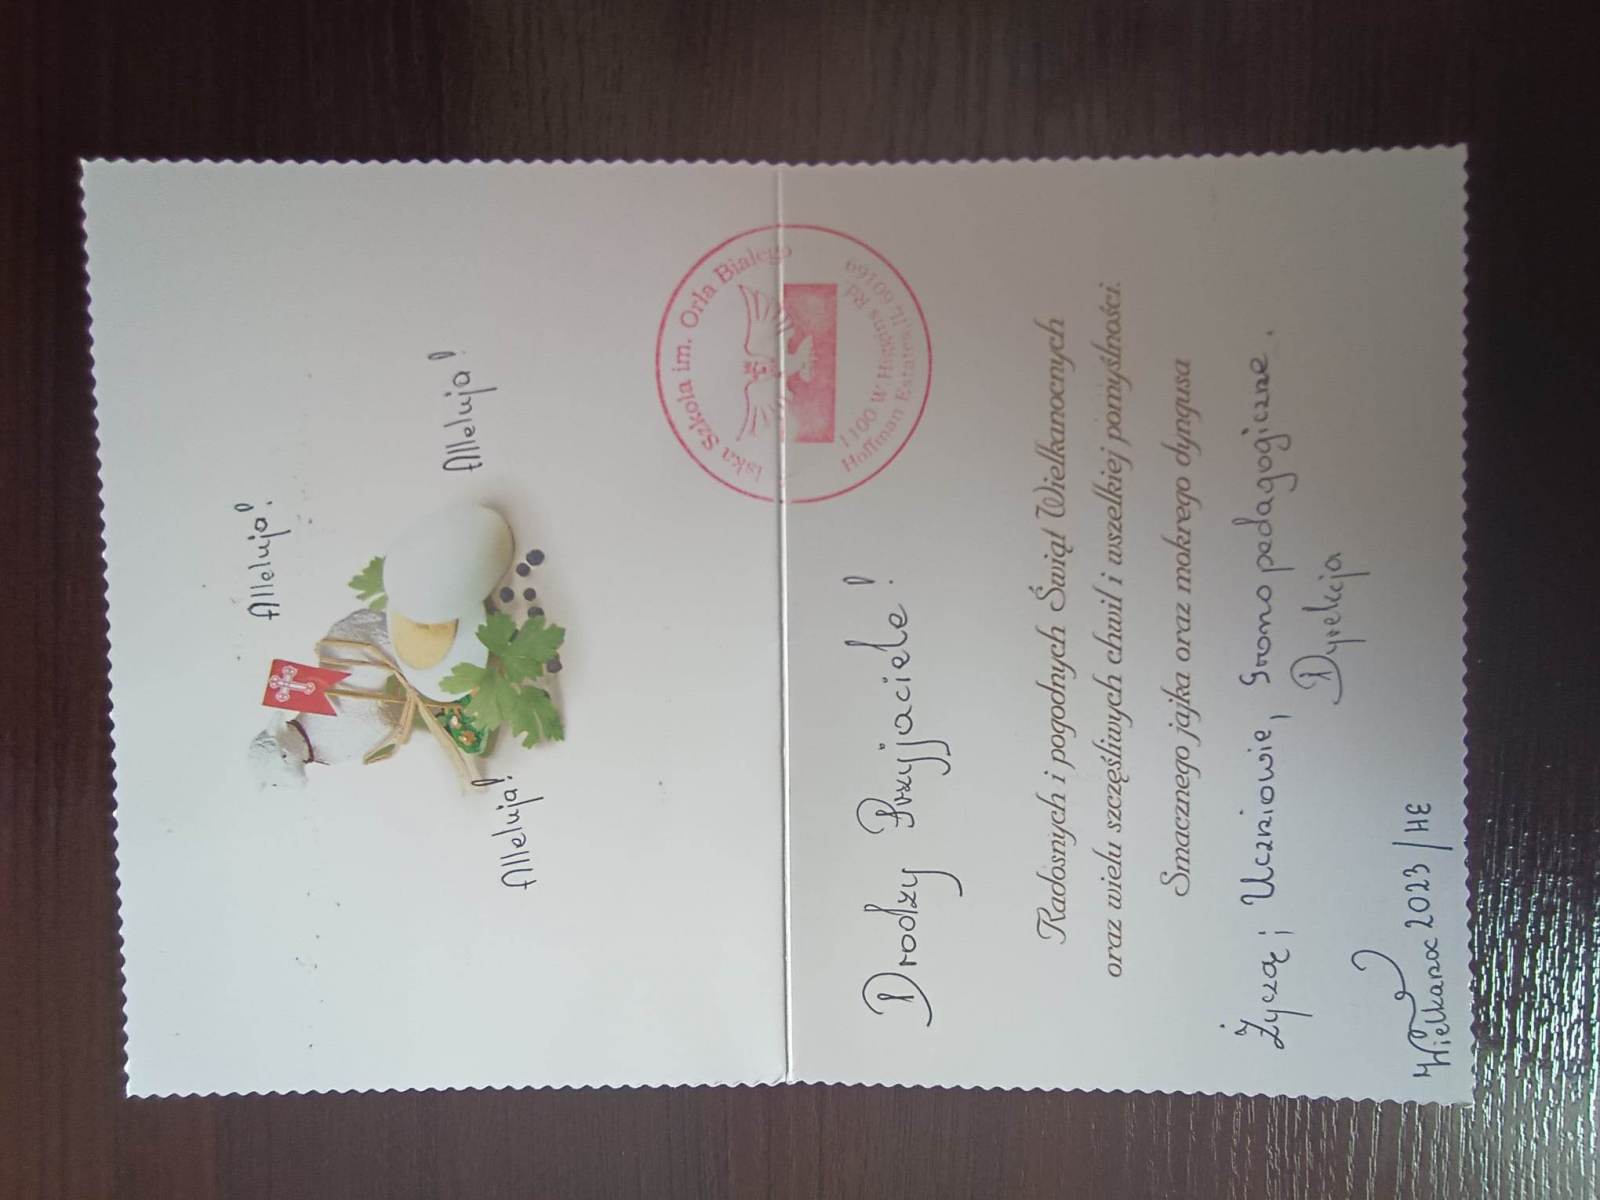 Alleluja!
Alleluja!
Alleluja!
lska Szkoła im. Orła Białego
1100 W. Higgins Rd
Hoffman Estates, IL 60169
Drodzy Przyjaciele!
Radosnych i pogodnych Świąt Wielkanocnych
oraz wielu szczęśliwych chwil i wszelkiej pomyślności.
Smacznego jajka oraz mokrego dyngusa
Życzą; Uczniowie, Grono pedagogiczne,
Dyrekcja
Wielkanoc 2023/HE